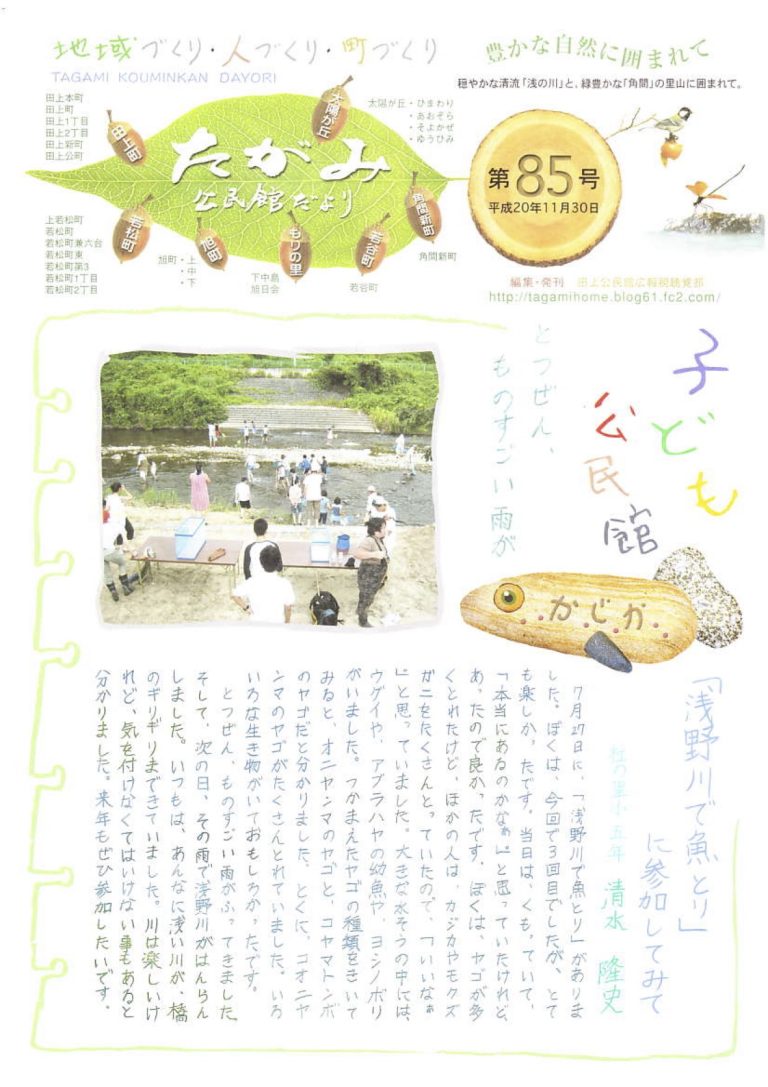 地域づくり・人づくり・町づくり
TAGAMI KOUMINKAN DAYORI
豊かな自然に囲まれて
穏やかな清流「浅の川」と、緑豊かな「角間」の里山に囲まれて。
田上本町
田上町
田上1丁目
田上2丁目
田上新町
田上公町
田上町
太陽が丘
太陽が丘・ひまわり
・あおぞら
・そよかぜ
・ゆうひみ
たがみ
公民館だより
第85号
平成20年11月30日
上若松町
若松町
若松町兼六台
若松町東
若松町第3
若松町1丁目
若松町2丁目
若松町
旭町
旭町・上
・中
・下
もりの里
下中島
旭日会
若谷町
若谷町
角間新町
角間新町
編集・発刊 田上公民館広報視聴覚部
http://tagamihome.blog61.fc2.com/
子ども
公民館
とつぜん、
ものすごい雨が
かじか
「浅野川で魚とり」
に参加してみて
杜の里小五年 清水 隆史
7月27日に、「浅野川で魚とり」がありま
した。ぼくは、今回で3回目でしたが、とて
も楽しかったです。当日は、くもっていて、
「本当にあるのかなぁ。」と思っていたけれど、
あったので良かったです。ぼくは、ヤゴが多
くとれたけど、ほかの人は、カジカやモクズ
ガニをたくさんとっていたので、「いいなぁ
。」と思っていました。大きな水そうの中には、
ウグイや、アブラハヤの幼魚や、ヨシノボリ
がいました。つかまえたヤゴの種類をきいて
みると、オニヤンマのヤゴと、コヤマトンボ
のヤゴだと分かりました。とくに、コオニヤ
ンマのヤゴがたくさんとれていました。いろ
いろな生き物がいておもしろかったです。
とつぜん、ものすごい雨がふってきました。
そして、次の日、その雨で浅野川がはんらん
しました。いつもは、あんなに浅い川が、橋
のギリギリまできていました。川は楽しいけ
れど、気を付けなくてはいけない事もあると
分かりました。来年もぜひ参加したいです。